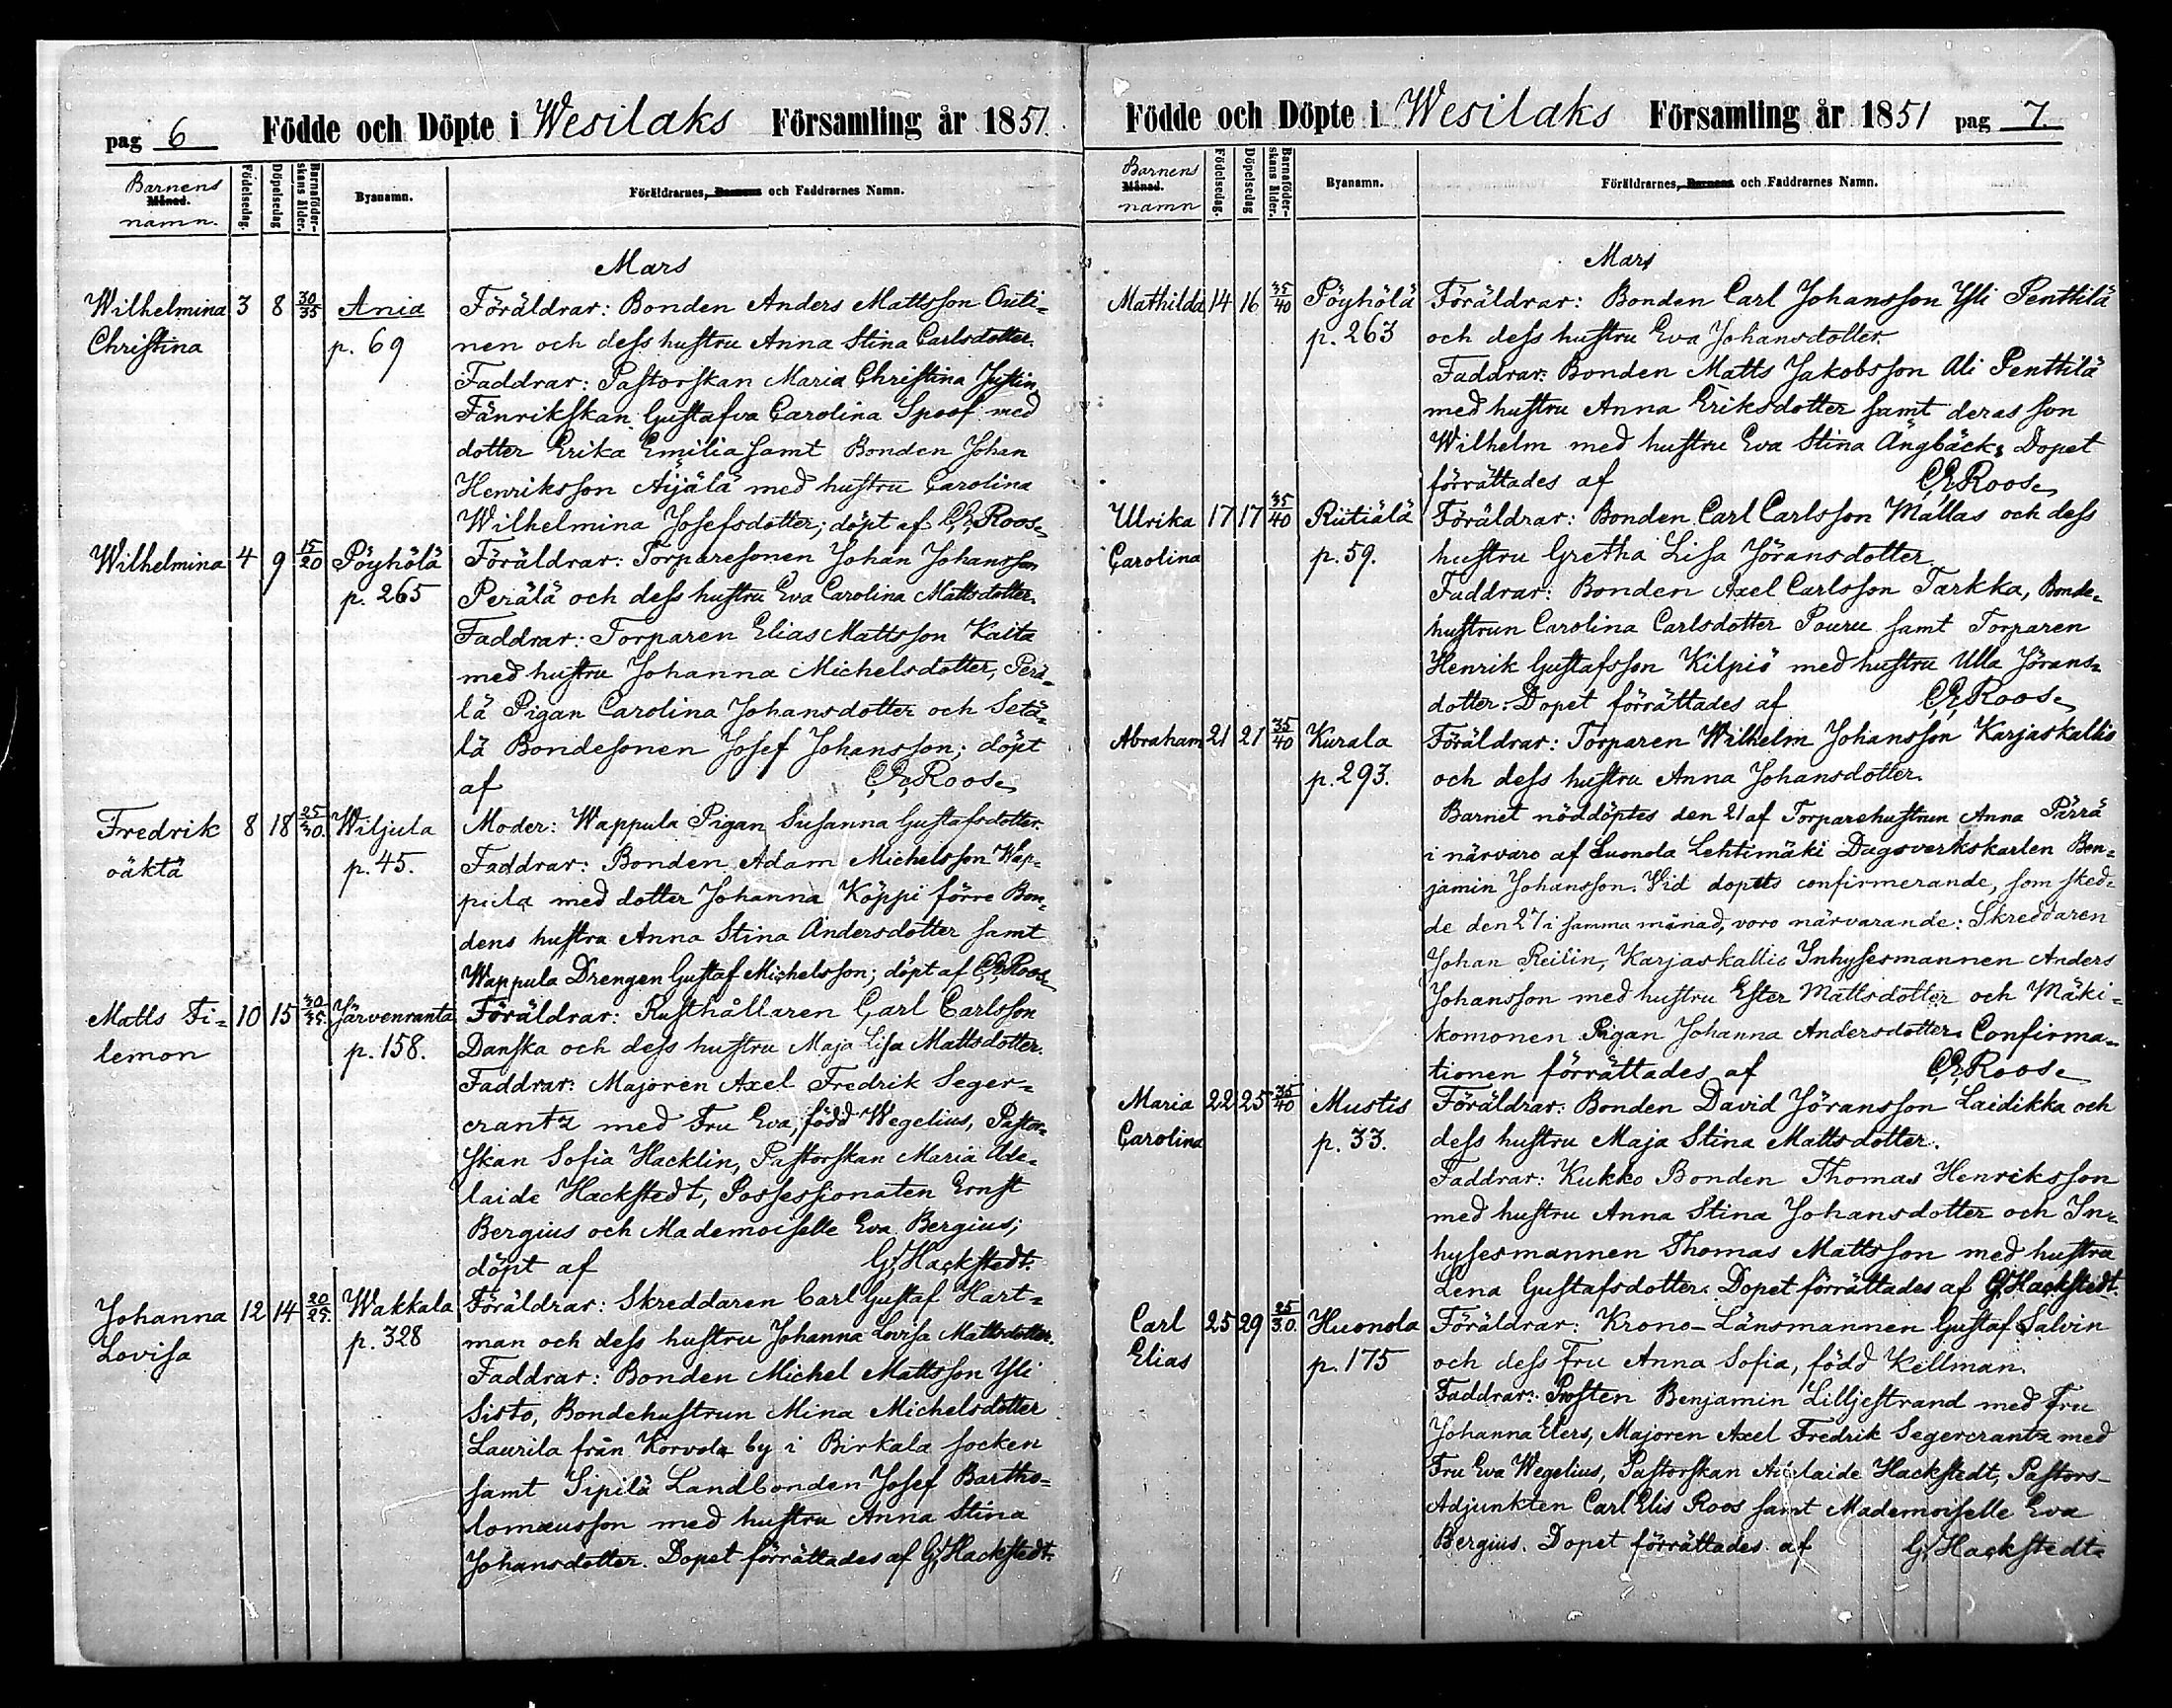 pag 6 Födde och Döpte i Wesilaks Församling år 1851.
Barnens
Månad.
namn.
Födelsedag.
Döpelsedag
Barnaföder-
skans ålder.
Byanamn.
Föräldrarnes, Barnens och Faddrarnes Namn.
Mars
Wilhelmina 3 8 30/35 Ania Föräldrar: Bonden Anders Mattsson Outi=
Christina p. 69 nen och dess hustru Anna Stina Carlsdotter.
Faddrar: Pastorskan Maria Christina Justin,
Fänrikskan Gustafva Carolina Spoof med
dotter Erika Emilia samt Bonden Johan
Henriksson Äijälä med hustru Carolina
Wilhelmina Josefsdotter; döpt af C.E. Roos
Wilhelmina 4 9 15/20 Pöyhölä Föräldrar: Torparesonen Johan Johansson
p. 265 Perälä och dess hustru Eva Carolina Mattsdotter.
Faddrar: Torparen Elias Mattsson Kaita
med hustru Johanna Michelsdotter, Perä=
lä Pigan Carolina Johansdotter och Setä=
lä Bondesonen Josef Johansson; döpt
af C.E. Roos
Fredrik 8 18 25/30. Wiljula Moder: Wappula Pigan Susanna Gustafsdotter.
oäkta p. 45. Faddrar: Bonden Adam Michelsson Wap=
pula med dotter Johanna Köppi förre Bon=
dens hustru Anna Stina Andersdotter samt
Wappula Drengen Gustaf Michelsson; döpt af C.E. Roos
Matts Fi= 10 15 30/35. Järvenranta Föräldrar: Rusthållaren Carl Carlsson
lemon p. 158. Danska och dess hustru Maja Lisa Mattsdotter.
Faddrar: Majoren Axel Fredrik Seger=
crantz med Fru Eva, född Wegelius, Pastor=
skan Sofia Hacklin, Pastorskan Maria Ade=
laide Hackstedt, Possessionaten Ernst
Bergius och Mademoiselle Eva Bergius;
döpt af G. Hackstedt.
Johanna 12 14 20/25. Wakkala Föräldrar: Skreddaren Carl Gustaf Hart=
Lovisa p. 328 man och dess hustru Johanna Lovisa Mattsdotter.
Faddrar: Bonden Michel Mattsson Yli
Sisto, Bondehustrun Mina Michelsdotter
Laurila från Korvola by i Birkala socken
samt Sipilä Landbonden Josef Bartho=
lomæusson med hustru Anna Stina
Johansdotter. Dopet förrättades af G. Hackstedt.
Födde och Döpte i Wesilaks Församling år 1851 pag 7.
Barnens
Månad.
namn
Födelsedag.
Döpelsedag
Barnaföder-
skans ålder.
Byanamn.
Föräldrarnes, Barnens och Faddrarnes Namn.
Mars
Mathilda 14 16 35/40 Pöyhölä Föräldrar: Bonden Carl Johansson Yli Penttilä
p. 263 och dess hustru Eva Johansdotter.
Faddrar: Bonden Matts Jakobsson Ali Penttilä
med hustru Anna Eriksdotter samt deras son
Wilhelm med hustru Eva Stina Ängbäck, Dopet
förrättades af C.E. Roos
Ulrika 17 17 35/40 Riitiälä Föräldrar: Bonden Carl Carlsson Mallas och dess
Carolina p. 59. hustru Gretha Lisa Jöransdotter.
Faddrar: Bonden Axel Carlsson Tarkka, Bonde=
hustrun Carolina Carlsdotter Pouru samt Torparen
Henrik Gustafsson Kilpiö med hustru Ulla Jörans=
dotter. Dopet förrättades af C.E. Roos
Abraham 21 21 35/40 Kurala Föräldrar: Torparen Wilhelm Johansson Karjaskallio
p. 293. och dess hustru Anna Johansdotter.
Barnet nöddöptes den 21 af Torparehustrun Anna Pärrä
i närvaro af Suonola Lehtimäki Dagsverkskarlen Ben=
jamin Johansson. Vid dopets confirmerande, som sked=
de den 27 i samma månad, voro närvarande: Skreddaren
Johan Reilin, Karjaskallio Inhysesmannen Anders
Johansson med hustru Ester Mattsdotter och Mäki=
komonen Pigan Johanna Andersdotter. Confirma=
tionen förrättades af C.E. Roos
Maria 22 25 35/40 Mustis Föräldrar: Bonden David Jöransson Laidikka och
Carolina p. 33. dess hustru Maja Stina Mattsdotter.
Faddrar: Kukko Bonden Thomas Henriksson
med hustru Anna Stina Johansdotter och In=
hysesmannen Thomas Mattsson med hustru
Lena Gustafsdotter. Dopet förrättades af G. Hackstedt.
Carl 25 29 25/30. Huonola Föräldrar: Krono-Länsmannen Gustaf Salvin
Elias p. 175 och dess Fru Anna Sofia, född Kellman.
Faddrar: Prosten Benjamin Lilljestrand med Fru
Johanna Elers, Majoren Axel Fredrik Segercrantz med
Fru Eva Wegelius, Pastorskan Adelaide Hackstedt, Pastors-
Adjunkten Carl Elis Roos samt Mademoiselle Eva
Bergius. Dopet förrättades af G. Hackstedt